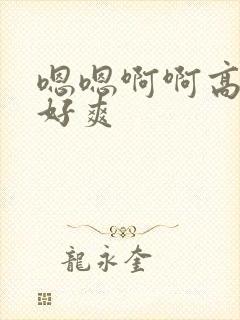 嗯嗯啊啊高
好爽
龍永奎